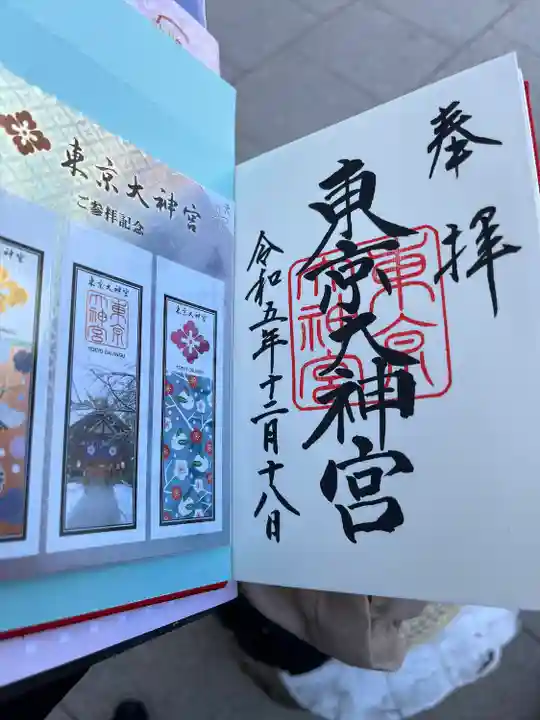 奉拝
東京大神宮
東京大神宮
令和五年十二月十八日
東京大神宮
ご参拝記念
神宮
東京大神宮
東京大神宮
TOKYO DAIJINGU
東京大神宮
TOKYO DAIJINGU